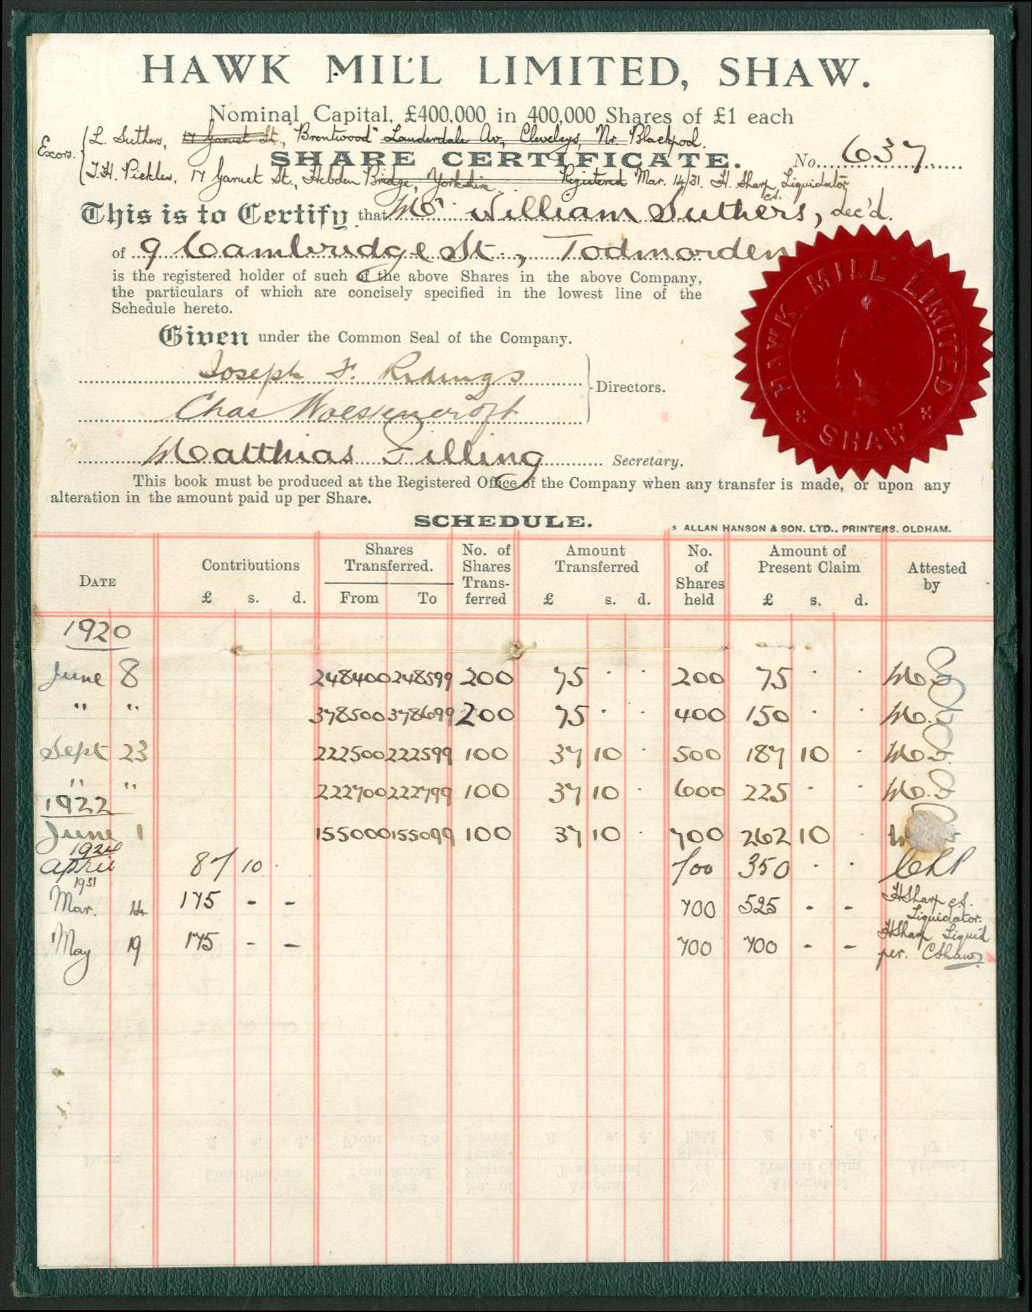 HAWK MILL LIMITED, SHAW.
Nominal Capital, £400,000 in 400,000 Shares of £1 each
Excors. { L. Suthers, 17 Garnet St., "Brentwood" Lauderdale Av, Cleveleys, Nr. Blackpool.
SHARE CERTIFICATE. No. 637
T.H. Pickles, 17 Garnet St., Hebden Bridge, Yorkshire. Registered Mar. 14/31. H. Sharp c.s. Liquidator
This is to Certify that Mr William Suthers, dec'd.
of 9 Cambridge St., Todmorden
is the registered holder of such of the above Shares in the above Company,
the particulars of which are concisely specified in the lowest line of the
Schedule hereto.
Given under the Common Seal of the Company.
Joseph F. Ridings
Chas Wolstencroft
Directors.
Matthias Pilling Secretary.
HAWK MILL LIMITED
SHAW
This book must be produced at the Registered Office of the Company when any transfer is made, or upon any
alteration in the amount paid up per Share.
SCHEDULE.
ALLAN HANSON & SON. LTD., PRINTERS. OLDHAM.
DATE Contributions £ s. d. Shares Transferred. From To No. of Shares Trans-ferred Amount Transferred £ s. d. No. of Shares held Amount of Present Claim £ s. d. Attested by
1920
June 8 248400 248599 200 75 . . 200 75 . .
" " 378500 378699 200 75 . . 400 150 . .
Sept 23 222500 222599 100 37 10 . 500 187 10 .
" " 222700 222799 100 37 10 . 600 225 . .
1922
June 1 155000 155099 100 37 10 . 700 262 10 .
1924
April 87 10 . 700 350 . .
1931
Mar. 14 175 - - 700 525 - - H Sharp c.s. Liquidator.
May 19 175 - - 700 700 - - H Sharp Liquid per. C Shaw